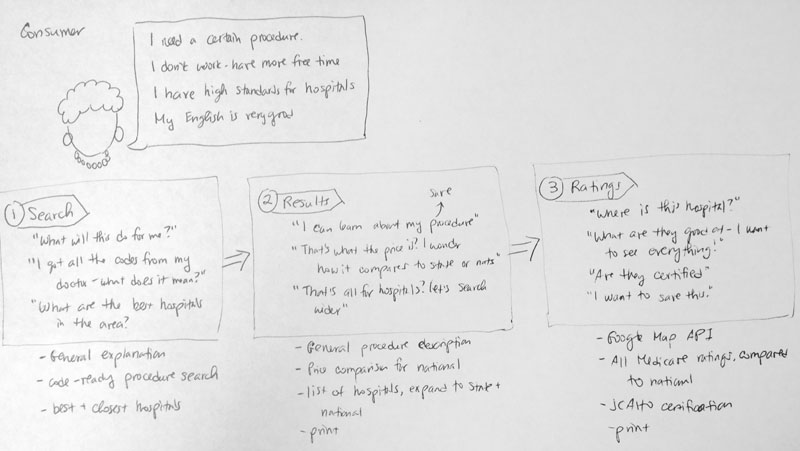 Consumer
I need a certain procedure.
I don't work - have more free time
I have high standards for hospitals
My English is very good
1 Search
"What will this do for me?"
"I got all the codes from my
doctor - what does it mean?"
"What are the best hospitals
in the area?
- General explanation
- code-ready procedure search
- best + closest hospitals
2 Results
save
"I can learn about my procedure"
"That's what the price is? I wonder
how it compares to state or natl"
"That's all for hospitals? Let's search
wider"
- General procedure description
- Price comparison for national
- list of hospitals, expand to state +
national
- print
3 Ratings
"Where is this hospital?"
"What are they good at - I want
to see everything!"
"Are they certified"
"I want to save this."
- Google Map API
- All Medicare ratings, compared
to national
- JCAHO certification
- print